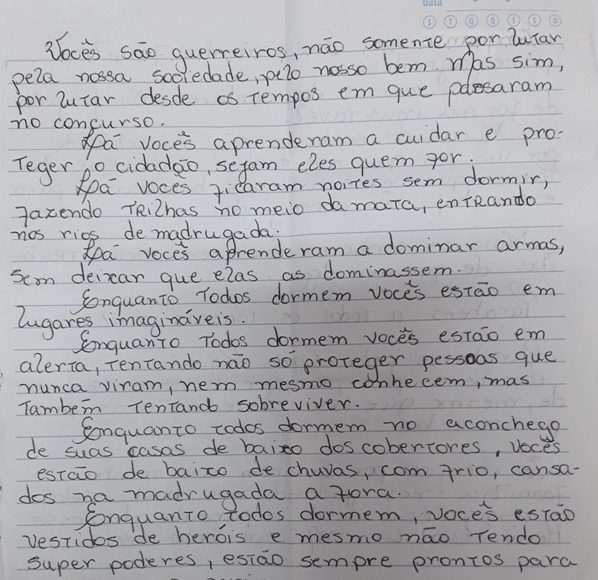 Vocês são guerreiros, não somente por lutar
pela nossa sociedade, pelo nosso bem. Mas sim,
por lutar desde os tempos em que passaram
no concurso.
Lá vocês aprenderam a cuidar e pro-
teger o cidadão, sejam eles quem for.
Lá vocês ficaram noites sem dormir,
fazendo trilhas no meio da mata, entrando
nos rios de madrugada.
Lá vocês aprenderam a dominar armas,
sem deixar que elas as dominassem.
Enquanto todos dormem vocês estão em
lugares imagináveis.
Enquanto todos dormem vocês estão em
alerta, tentando não só proteger pessoas que
nunca viram, nem mesmo conhecem, mas
também tentando sobreviver.
Enquanto todos dormem no aconchego
de suas casas de baixo dos cobertores, vocês
estão de baixo de chuvas, com frio, cansa-
dos na madrugada a fora.
Enquanto todos dormem, vocês estão
vestidos de heróis e mesmo não tendo
super poderes, estão sempre prontos para